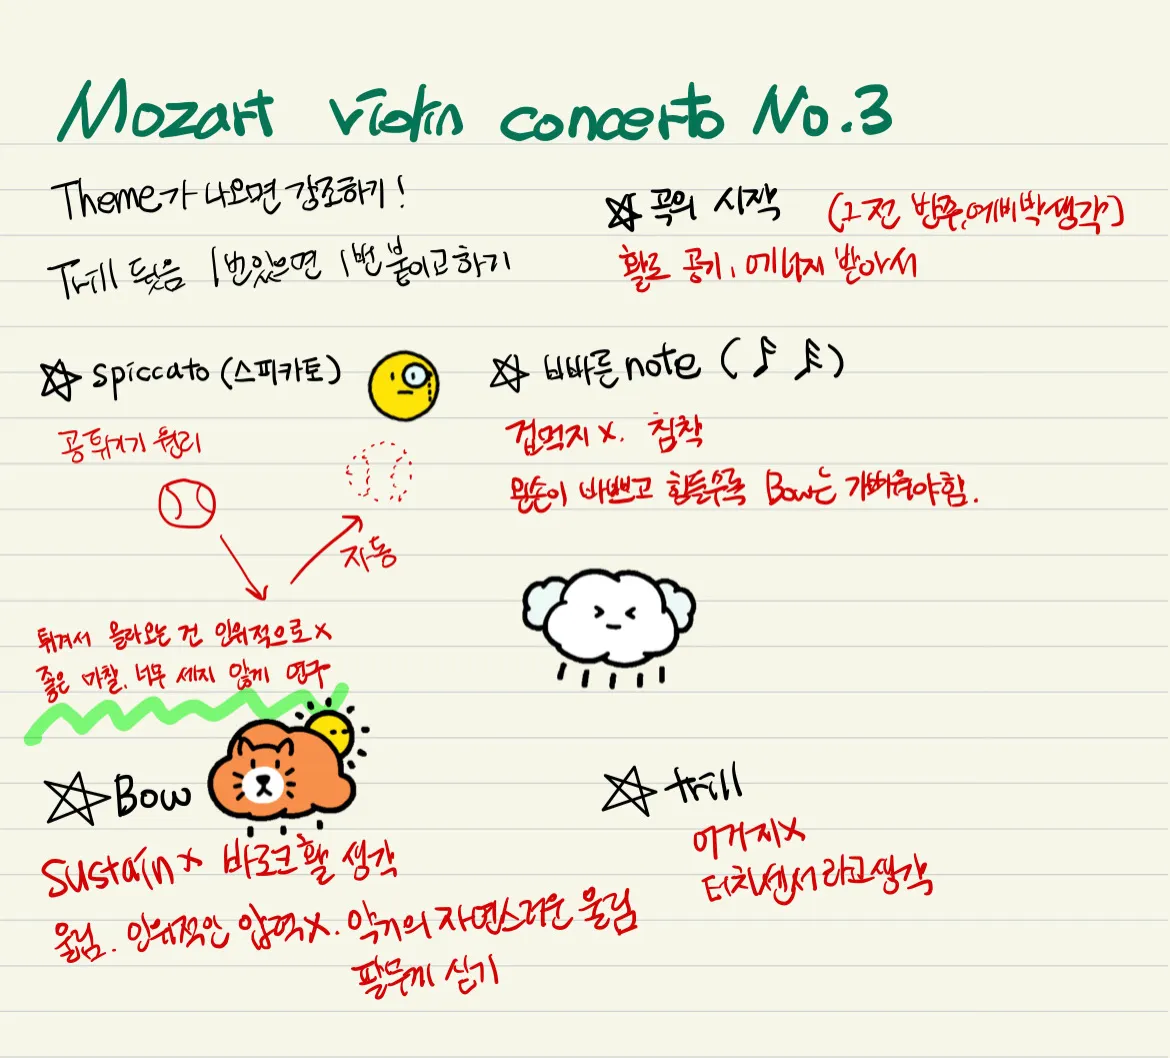 Mozart violin concerto No.3
Theme가 나오면 강조하기!
Trill 뒷음 1번있으면 1번 붙이고하기
☆ 곡의 시작 (그전 반주, 예비박생각)
활로 공기, 에너지 받아서
☆ spiccato (스피카토)
공 튀기기 원리
자동
튀겨서 올라오는 건 인위적으로 x
좋은 마찰, 너무 세지 않게 연구
☆ 빠른 note (♪ )
겁먹지 x. 침착
왼손이 바쁘고 힘들수록 Bow는 가벼워야함.
☆ Bow
Sustain x 바로크 활 생각
울림. 인위적인 압력x. 악기의 자연스러운 울림
팔무게 싣기
☆ trill
이거지x
터치센서라고생각